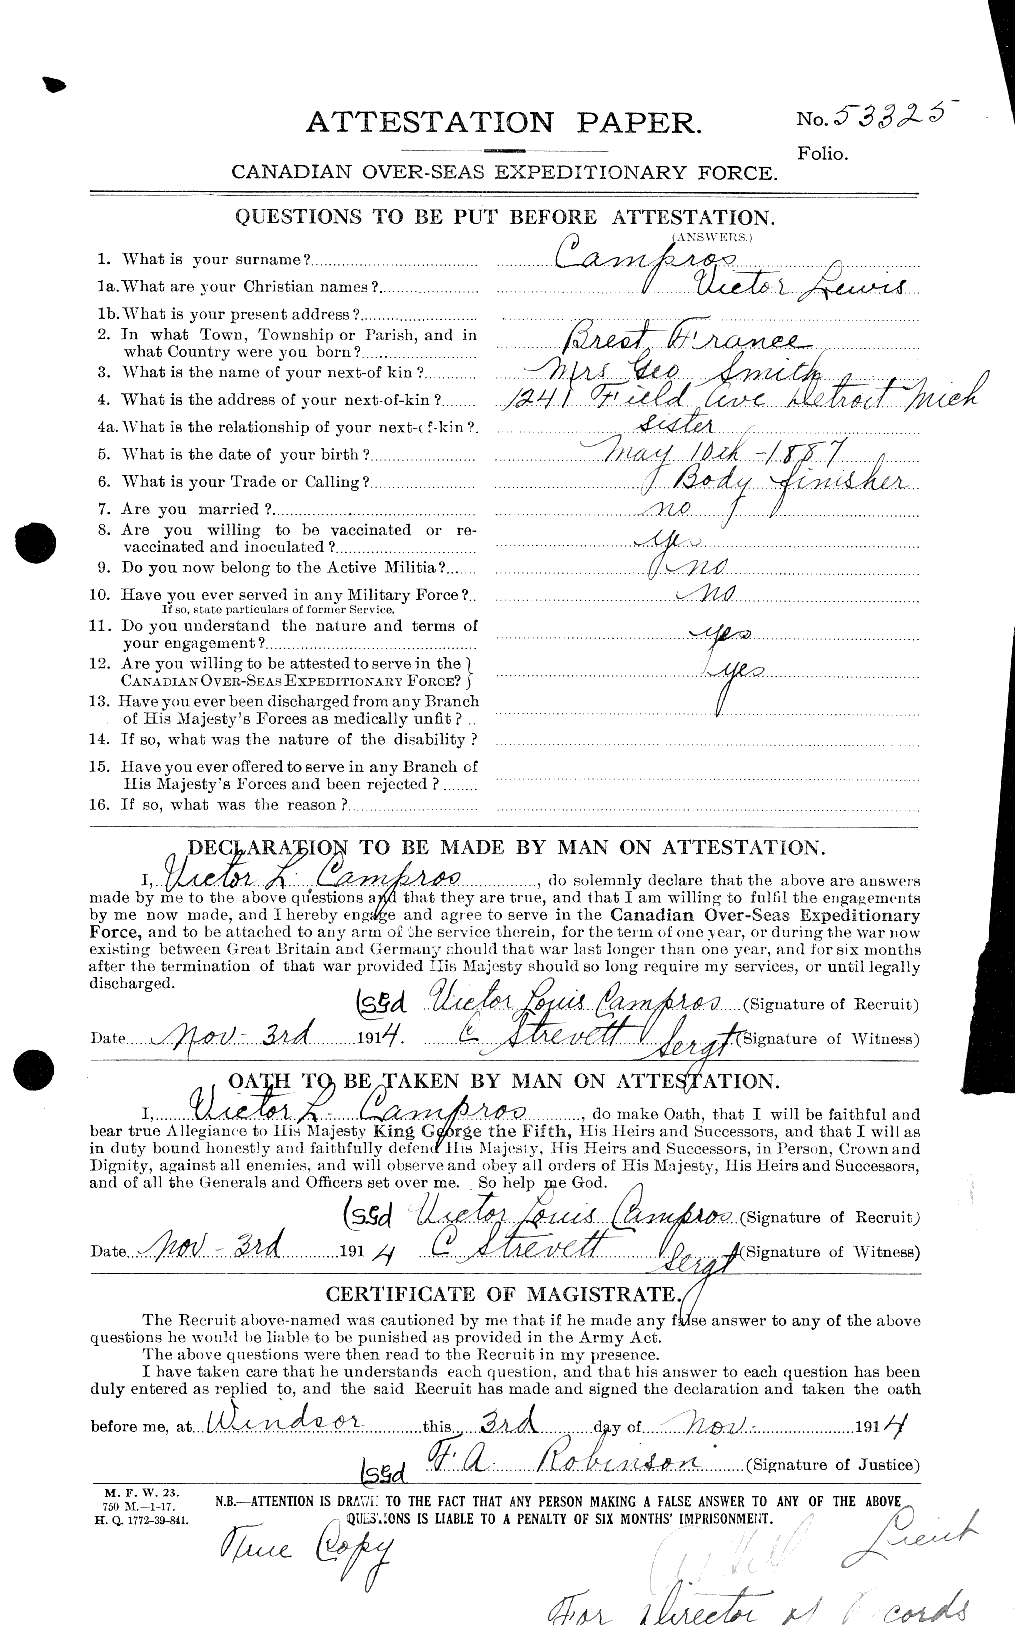 ATTESTATION PAPER.
No. 53325
Folio.
CANADIAN OVER-SEAS EXPEDITIONARY FORCE.
QUESTIONS TO BE PUT BEFORE ATTESTATION.
(ANSWERS.)
1. What is your surname?.... Campros
1a. What are your Christian names?.... Victor Lewis
1b. What is your present address?....
2. In what Town, Township or Parish, and in
what Country were you born?.... Brest, France
3. What is the name of your next-of kin?.... Mrs Geo Smith
4. What is the address of your next-of-kin?.... 1241 Field Ave Detroit Mich
4a. What is the relationship of your next-of-kin?. sister
5. What is the date of your birth?.... May 10th - 1887
6. What is your Trade or Calling?.... Body finisher
7. Are you married?.... no
8. Are you willing to be vaccinated or re-
vaccinated and inoculated?.... yes
9. Do you now belong to the Active Militia?.... no
10. Have you ever served in any Military Force?.. no
If so, state particulars of former Service.
11. Do you understand the nature and terms of
your engagement?.... yes
12. Are you willing to be attested to serve in the }
CANADIAN OVER-SEAS EXPEDITIONARY FORCE? } yes
13. Have you ever been discharged from any Branch
of His Majesty's Forces as medically unfit? ..
14. If so, what was the nature of the disability?
15. Have you ever offered to serve in any Branch of
His Majesty's Forces and been rejected?....
16. If so, what was the reason?....
DECLARATION TO BE MADE BY MAN ON ATTESTATION.
I, Victor L. Campros, do solemnly declare that the above are answers
made by me to the above questions and that they are true, and that I am willing to fulfil the engagements
by me now made, and I hereby engage and agree to serve in the Canadian Over-Seas Expeditionary
Force, and to be attached to any arm of the service therein, for the term of one year, or during the war now
existing between Great Britain and Germany should that war last longer than one year, and for six months
after the termination of that war provided His Majesty should so long require my services, or until legally
discharged.
(sgd Victor Louis Campros (Signature of Recruit)
Date Nov - 3rd 1914. C Strevett Sergt (Signature of Witness)
OATH TO BE TAKEN BY MAN ON ATTESTATION.
I, Victor L. Campros, do make Oath, that I will be faithful and
bear true Allegiance to His Majesty King George the Fifth, His Heirs and Successors, and that I will as
in duty bound honestly and faithfully defend His Majesty, His Heirs and Successors, in Person, Crown and
Dignity, against all enemies, and will observe and obey all orders of His Majesty, His Heirs and Successors,
and of all the Generals and Officers set over me. So help me God.
(sgd Victor Louis Campros (Signature of Recruit)
Date Nov - 3rd 1914 C Strevett Sergt (Signature of Witness)
CERTIFICATE OF MAGISTRATE.
The Recruit above-named was cautioned by me that if he made any false answer to any of the above
questions he would be liable to be punished as provided in the Army Act.
The above questions were then read to the Recruit in my presence.
I have taken care that he understands each question, and that his answer to each question has been
duly entered as replied to, and the said Recruit has made and signed the declaration and taken the oath
before me, at Windsor this 3rd day of Nov. 1914
(sgd F A Robinson (Signature of Justice)
M. F. W. 23.
750 M.—1-17.
H. Q. 1772-39-841.
N.B.—ATTENTION IS DRAWN TO THE FACT THAT ANY PERSON MAKING A FALSE ANSWER TO ANY OF THE ABOVE
QUESTIONS IS LIABLE TO A PENALTY OF SIX MONTHS' IMPRISONMENT.
True Copy
Lieut
For Director of Records